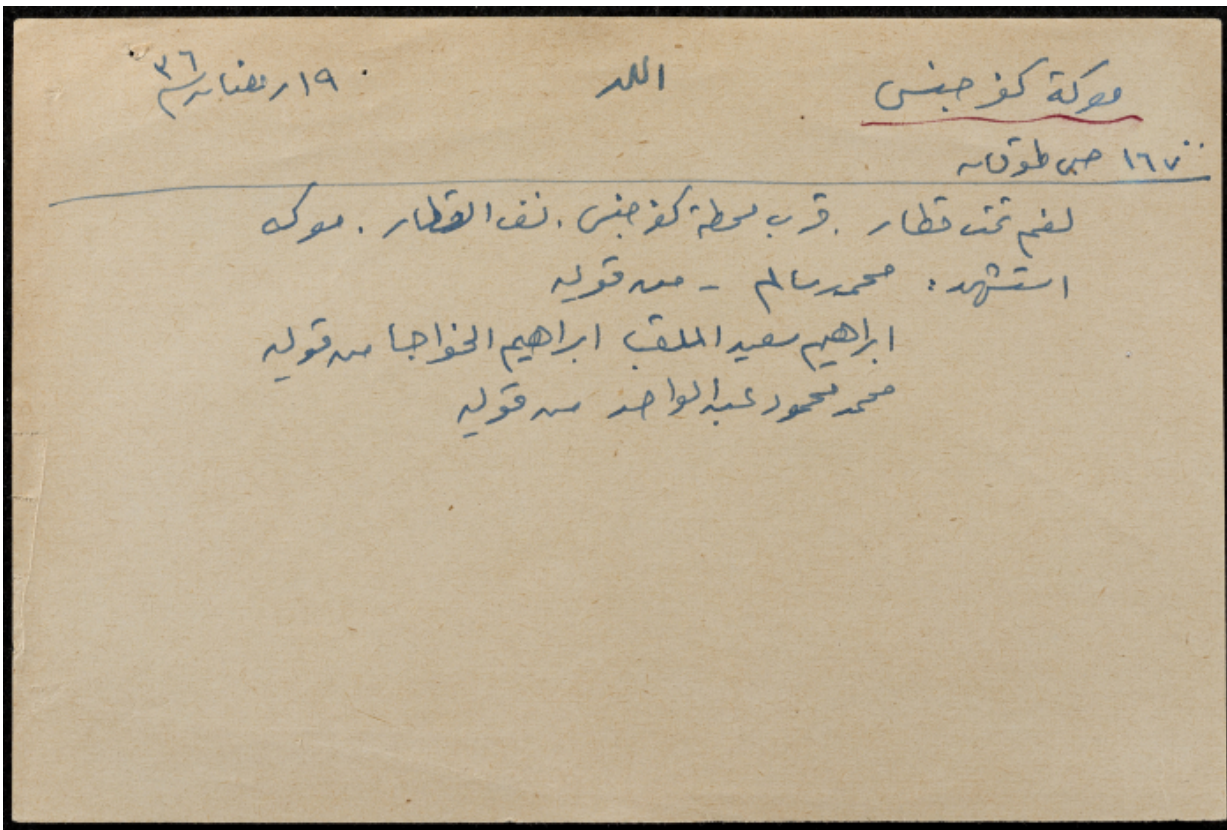 معركة كفر جنس اللد ١٩ رمضان سنة ٣٦
١٦٧٠٠ صبحي طوقان
لغم تحت قطار . قرب محطة كفر جنس . نسف القطار . معركة
استشهد : محمد سالم - من قوله
ابراهيم سعيد الملقب ابراهيم الخواجا من قوله
محمد محمود عبد الواحد من قوله